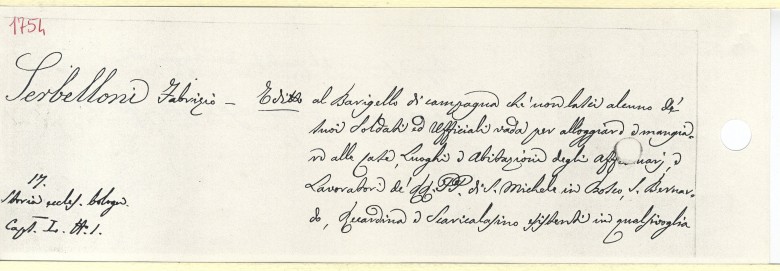 1754
Serbelloni Fabrizio – Editto al Barigello di campagna che non lasci alcuno de'
suoi Soldati ed Uffiziali vada per alloggiare o mangia-
re alle Case, Luoghi o Abitazioni degli o
Lavoratori de' PP. di S. Michele in Bosco, S. Bernar-
do, o Scaricalasino esistenti in qualsivoglia
17.
Storia eccles. bologn.
Capt. I. N. 1.